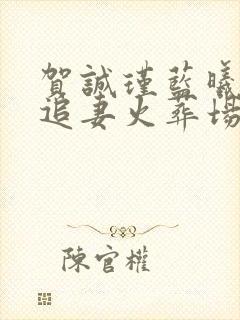 賀誠瑾藍曦
追妻火葬場
陳官權